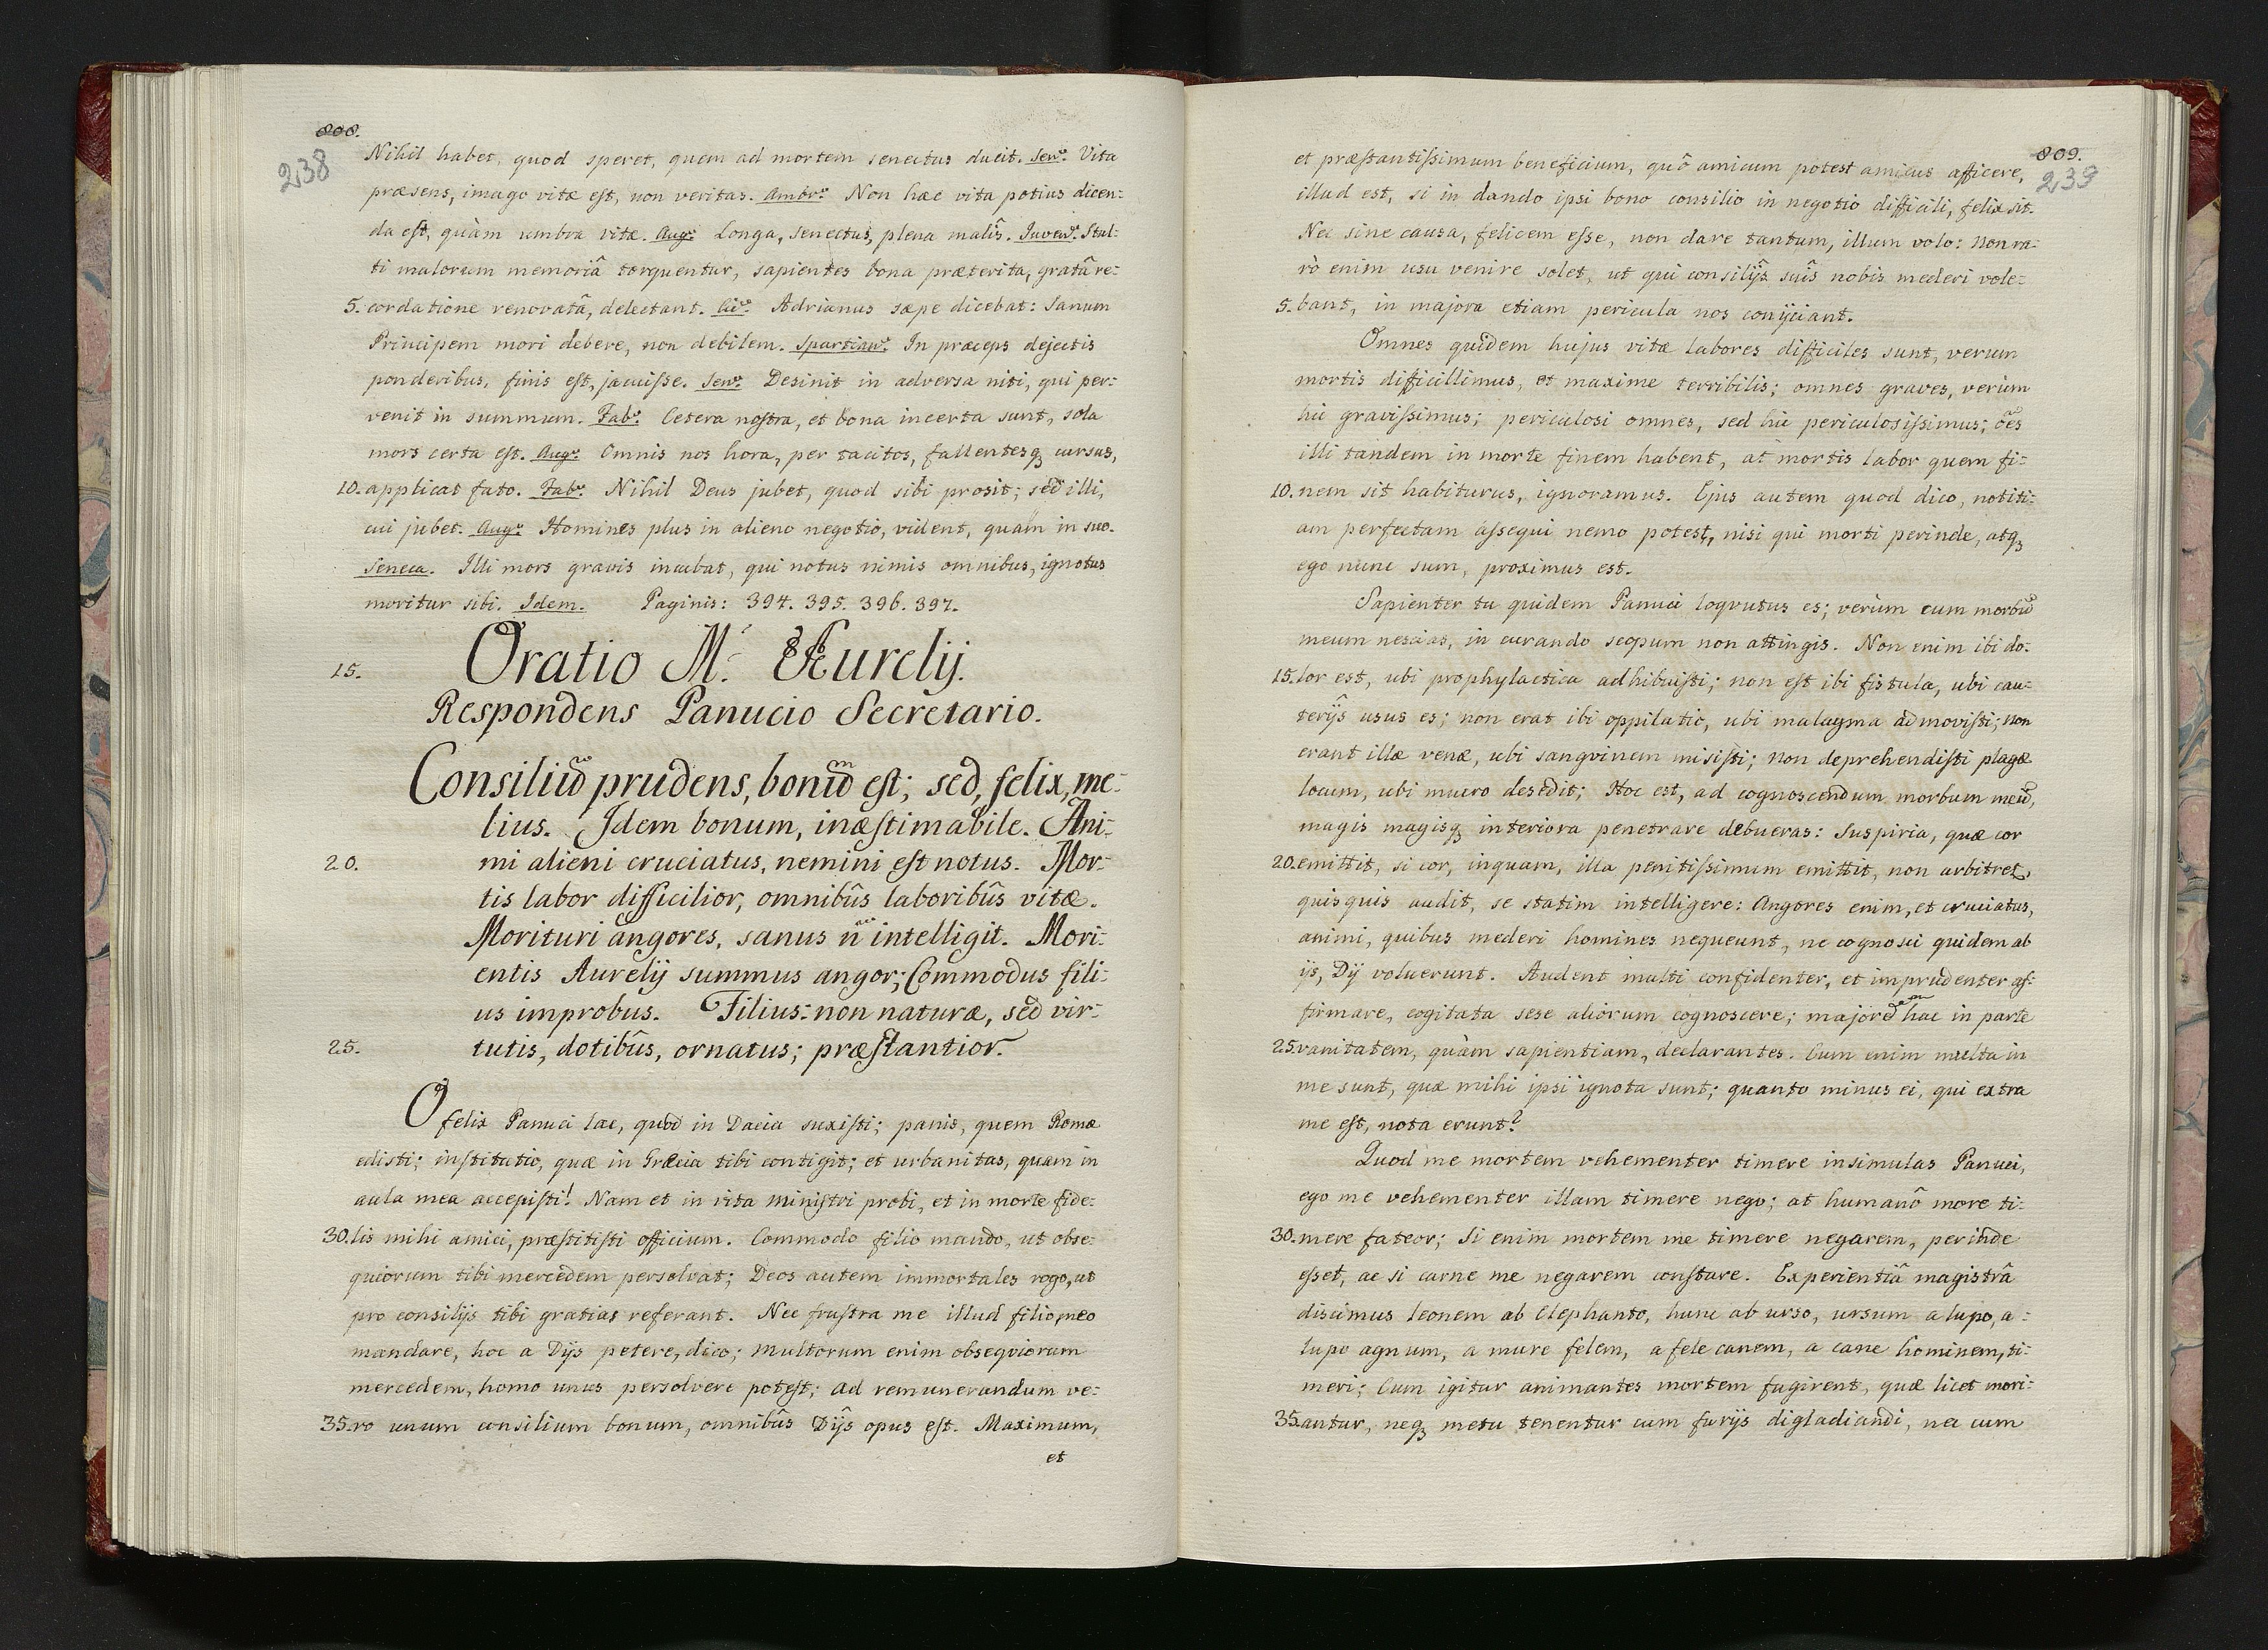 808.
238
Nihil habet, quod speret, quem ad mortem senectus ducit. Senª: Vita
præsens, imago vitæ est, non veritas. Ambrˢ: Non hæc vita potius dicen:
da est, quàm umbra vitæ. Augˢ: Longa, senectus, plena malîs. Juvenˢ: Stul:
ti malorum memoriâ torquentur, sapientes bona præterita, gratâ re:
5. cordatione renovatâ, delectant. Cicº: Adrianus sæpe dicebat: Sanum
Principem mori debere, non debilem. Spartianˢ: In præceps dejectis
ponderibus, finis est, jacuisse. Senª: Desinit in adversa niti, qui per:
venit in summum. Fabˢ: Cetera nostra, et bona incerta sunt, sola
mors certa est. Augˢ: Omnis nos hora, per tacitos, fallentesq cursus,
10. applicat fato. Fabˢ: Nihil Deus jubet, quod sibi prosit; sed illi,
cui jubet. Augˢ: Homines plus in alieno negotio, vident, quam in suo.
Seneca. Illi mors gravis incubat, qui notus nimis omnibus, ignotus
moritur sibi. Idem. Paginis: 394. 395. 396. 397.
15. Oratio M: Aurelij.
Respondens Panucio Secretario.
Consiliu͞ prudens, bonu͞ est; sed, felix, me:
lius. Idem bonum, inæstimabile. Ani:
20. mi alieni cruciatus, nemini est notus. Mor:
tis labor difficilior, omnibûs laboribûs vitæ.
Morituri angores, sanus n͞ intelligit. Mori:
entis Aurelij summus angor; Commodus fili:
us improbus. Filius: non naturæ, sed vir:
25. tutis, dotibûs, ornatus; præstantior.
O felix Panuci lac, quod in Dacia suxisti; panis, quem Romæ
edisti; institutio, quæ in Græcia tibi contigit; et urbanitas, quam in
aula mea accepisti! Nam et in vita ministri probi, et in morte fide:
30. lis mihi amici, præstitisti officium. Commodo filio mando, ut obse:
quiorum tibi mercedem persolvat; Deos autem immortales rogo, ut
pro consilijs tibi gratias referant. Nec frustra me illud filio meo
mandare, hoc a Dijs petere, dico; multorum enim obseqviorum
mercedem, homo unus persolvere potest; ad remunerandum ve:
35. ro unum consilium bonum, omnibûs Dijs opus est. Maximum,
et
809.
239
et præstantissimum beneficium, quô amicum potest amicus afficere,
illud est, si in dando ipsi bono consilio in negotio difficili, felix sit.
Nec sine causa, felicem esse, non dare tantum, illum volo: Non ra:
rò enim usu venire solet, ut qui consilijs suîs nobis mederi vole:
5. bant, in majora etiam pericula nos conijciant.
Omnes quidem hujus vitæ labores difficiles sunt, verum
mortis difficillimus, et maxime terribilis; omnes graves, verùm
hic gravissimus; periculosi omnes, sed hic periculosissimus; o͞es
illi tandem in morte finem habent, at mortis labor quem fi:
10. nem sit habiturus, ignoramus. Ejus autem quod dico, notiti:
am perfectam assequi nemo potest, nisi qui morti perinde, atq
ego nunc sum, proximus est.
Sapienter tu quidem Panuci loqvutus es; verùm cum morbu͞
meum nescias, in curando scopum non attingis. Non enim ibi do:
15. lor est, ubi prophylactica adhibuisti; non est ibi fistula, ubi cau:
terijs usus es; non erat ibi oppilatio, ubi malagma admovisti; non
erant illæ venæ, ubi sangvinem misisti; non deprehendisti plagæ
locum, ubi mucro desedit; Hoc est, ad cognoscendum morbum meu͞,
magis magisq interiora penetrare debueras: Suspiria, quæ cor
20. emittit, si cor, inquam, illa penitissimum emittit, non arbitret,
quisquis audit, se statim intelligere: Angores enim, et cruciatus,
animi, quibus mederi homines nequeunt, ne cognosci quidem ab
ijs, Dij voluerunt. Audent multi confidenter, et imprudenter af:
firmare, cogitata sese aliorum cognoscere; majore͞ hac in parte
25. vanitatem, quàm sapientiam, declarantes. Cum enim multa in
me sunt, quæ mihi ipsi ignota sunt; quanto minus ei, qui extra
me est, nota erunt?
Quod me mortem vehementer timere insimulas Panuci,
ego me vehementer illam timere nego; at humanô more ti:
30. mere fateor; Si enim mortem me timere negarem, perinde
esset, ac si carne me negarem constare. Experientiâ magistrâ
discimus leonem ab Elephanto, hunc ab urso, ursum a lupo, a:
lupo agnum, a mure felem, a fele canem, a cane hominem, ti:
meri; Cum igitur animantes mortem fugirent, quæ licet mori:
35. antur, neq metu tenentur cum furijs digladiandi, nec cum